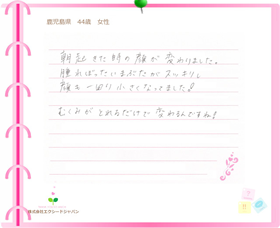 鹿児島県　44歳　女性
朝起きた時の顔が変わりました。
腫れぼったいまぶたがスッキリし
顔も一回り小さくなってました!!
むくみがとれるだけで変わるんですね!
株式会社エクシードジャパン